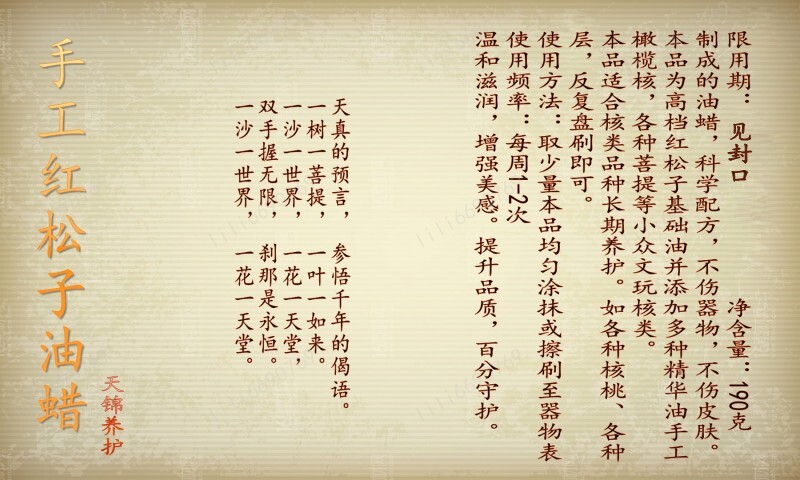 手工红松子油蜡
天锦养护
一沙一世界， 一花一天堂。
双手握无限， 刹那是永恒。
一沙一世界， 一花一天堂，
一树一菩提， 一叶一如来。
天真的预言， 参悟千年的偈语。
温和滋润，增强美感。提升品质，百分守护。
使用频率：每周1-2次
使用方法：取少量本品均匀涂抹或擦刷至器物表
层，反复盘刷即可。
本品适合核类品种长期养护。如各种核桃、各种
橄榄核，各种菩提等小众文玩核类。
本品为高档红松子基础油并添加多种精华油手工
制成的油蜡，科学配方，不伤器物，不伤皮肤。
限用期：见封口 净含量：190克